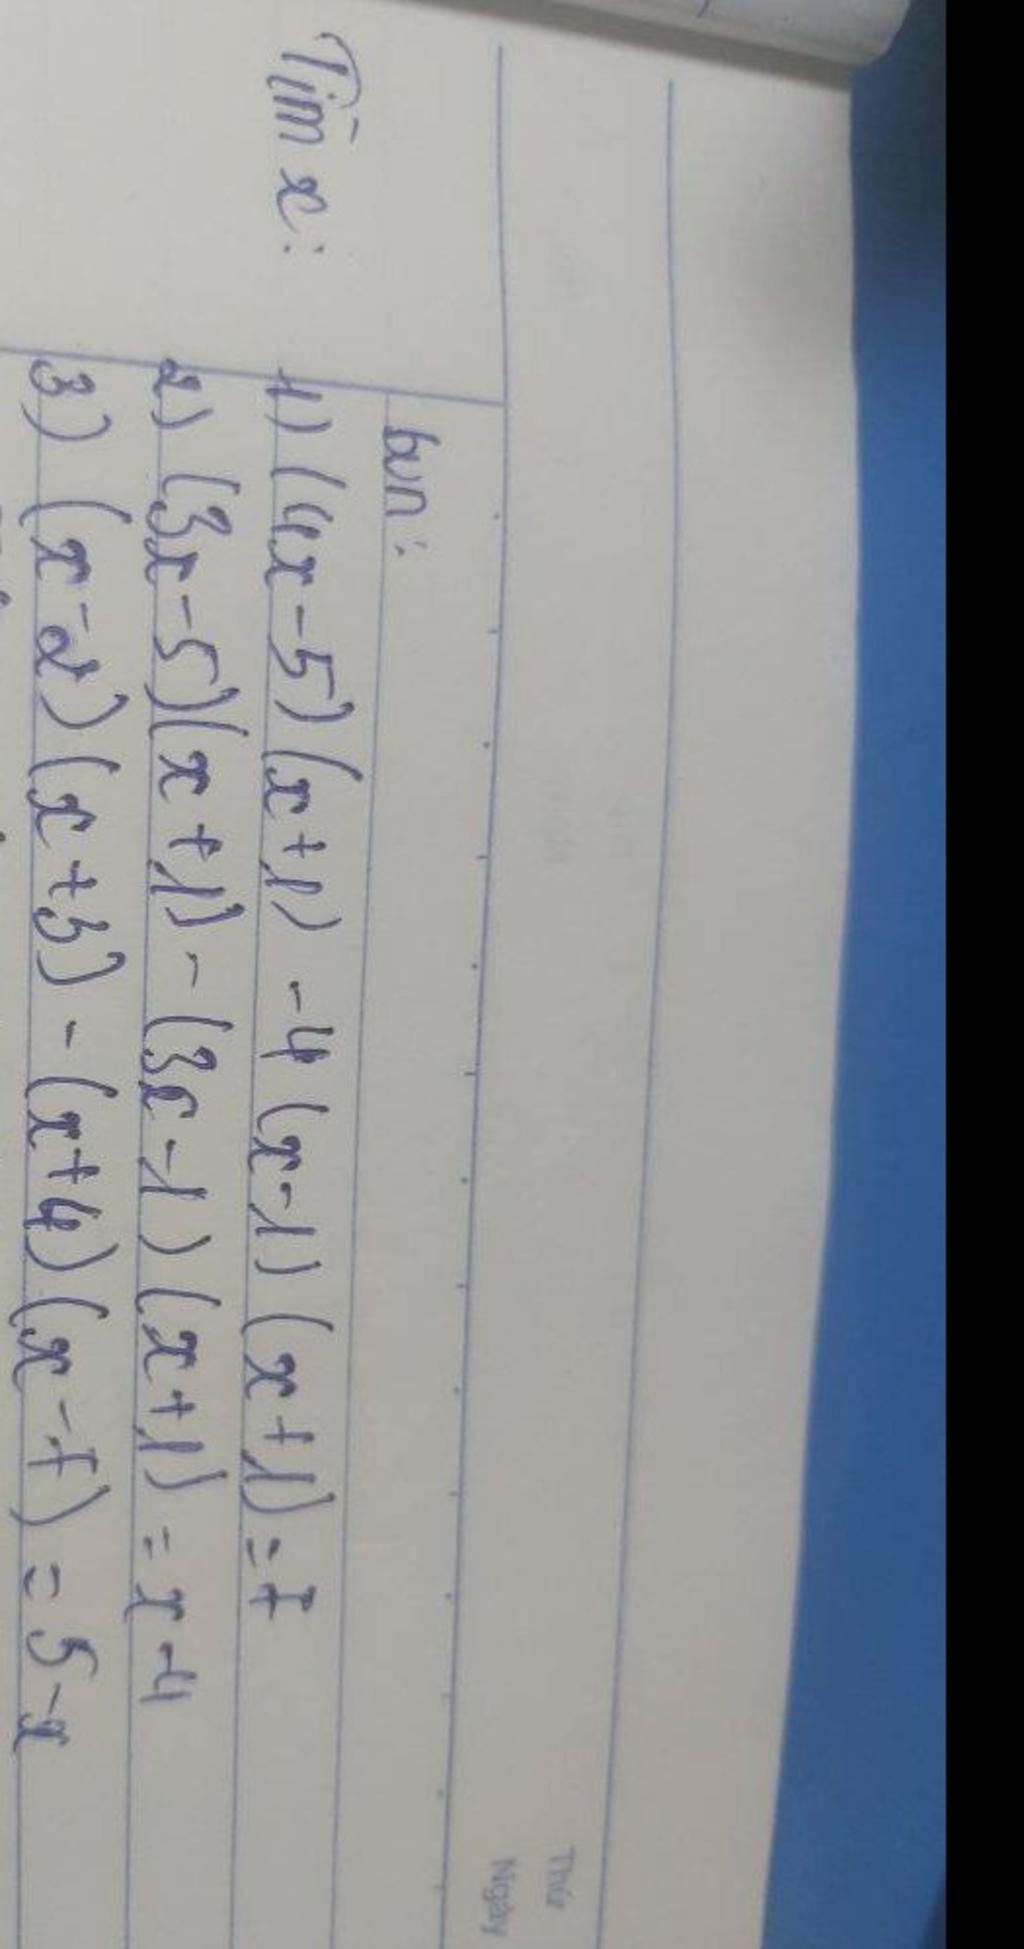 Thứ
Ngày
bvn:
Tìm x:
1) (4x-5)(x+1) -4(x-1)(x+1)=7
2) (3x-5)(x+1)-(3x-1)(x+1)=x-4
3) (x-2)(x+3)-(x+4)(x-7)=5-x